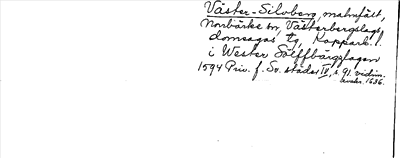 Väster-Silvberg, malmfält,
Norrbärke sn, Västerbergslags
domsagas tg, Kopparb. l.
i Wester Sölffbärgzlagen
1594 Priv. f. Sv. städer IV, s. 91. vidim.
avskr. 1636.